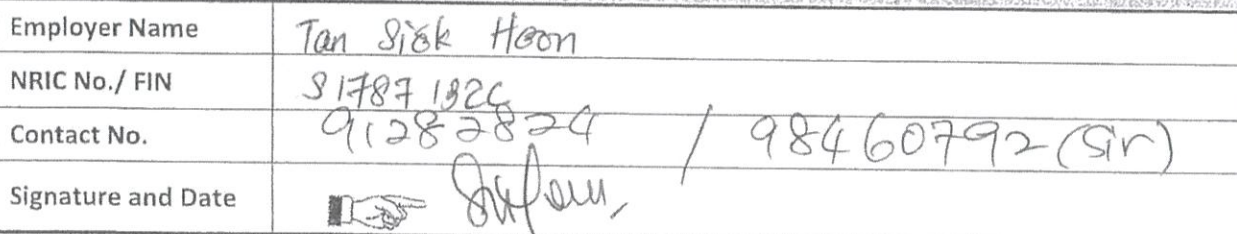 Employer Name Tan Siok Hoon
NRIC No./ FIN S1787132C
Contact No. 91282824 / 98460792 (Sir)
Signature and Date